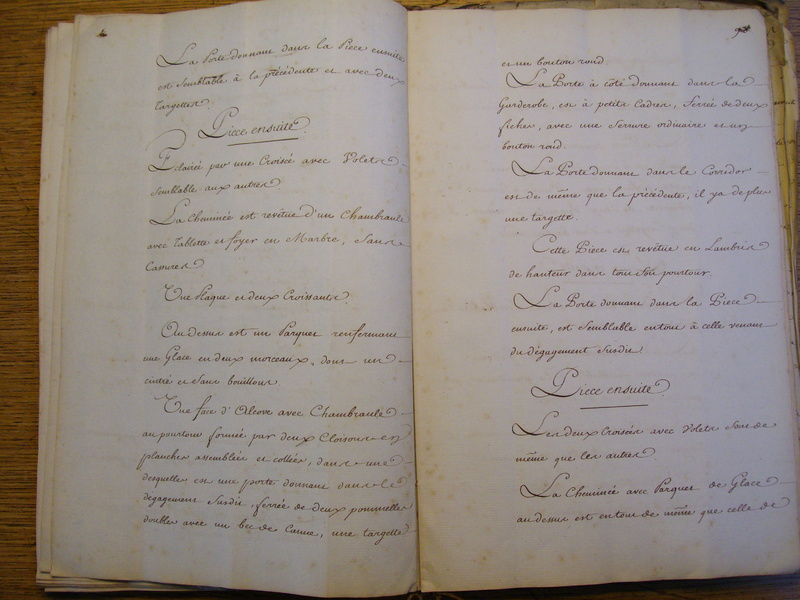 La Porte donnant dans la Piece ensuite
est semblable à la précédente et avec deux
targettes.
Piece ensuite.
Eclairée par une Croisée avec Volets
semblable aux autres
La Cheminée est revêtue d'un Chambranle
avec tablette et foyer en Marbre, Sans
Cassures
Une Plaque et deux Croissants.
Au dessus est un Parquet renfermant
une Glace en deux morceaux, dont un
cintré et sans bouillons.
Une face d'Alcove avec Chambranle
au pourtour formée par deux Cloisons en
planches assemblées et collées, dans une
desquelles est une porte donnant dans le
dégagement susdit, ferrée de deux poumelles
doubles avec un bec de Canne, une targette
et un bouton rond.
La Porte à côté donnant dans la
Garderobe, est à petits Cadres, ferrée de deux
fiches, avec une Serrure ordinaire et un
bouton rond.
La Porte donnant dans le Corridor
est de même que la précédente, il y a de plus
une targette.
Cette Piece est revêtue en Lambris
de hauteur dans tout son pourtour.
La Porte donnant dans la Piece
ensuite, est semblable en tout à celle venant
du dégagement susdit.
Piece ensuite.
Les deux Croisées avec Volets sont de
même que les autres
La Cheminée avec Parquet de Glace
au dessus est en tout de même que celle de